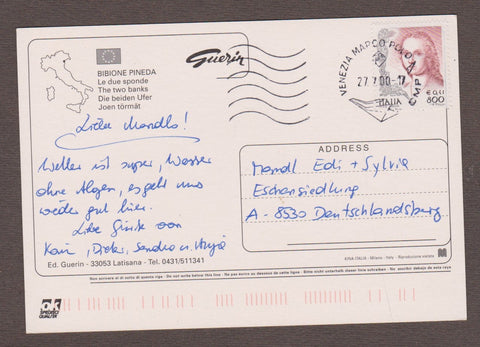 BIBIONE PINEDA
Le due sponde
The two banks
Die beiden Ufer
Joen törmät
Guerin
VENEZIA MARCO POLO
27.7.00-17
CMP
ITALIA
€ 0,41
800
Liebe Mandls!
Wetter ist super, Wasser
ohne Algen, es geht uns
wieder gut hier.
Liebe Grüße von
Karin, Dieter, Sandra u.
ADDRESS
Mandl Edi + Sylvia
Eschensiedlung
A - 8530 Deutschlandsberg
Ed. Guerin - 33053 Latisana - Tel. 0431/511341
KINA ITALIA - Milano - Italy - Riproduzione vietata
M
Non scrivere al di sotto di questa riga - Do not write below this line - Ne pas écrire au dessous de cette ligne - Bitte nicht unterhalb dieser Linie schreiben - No escribir debajo de esta raya
OK
SPEEDY
QUALITÀ